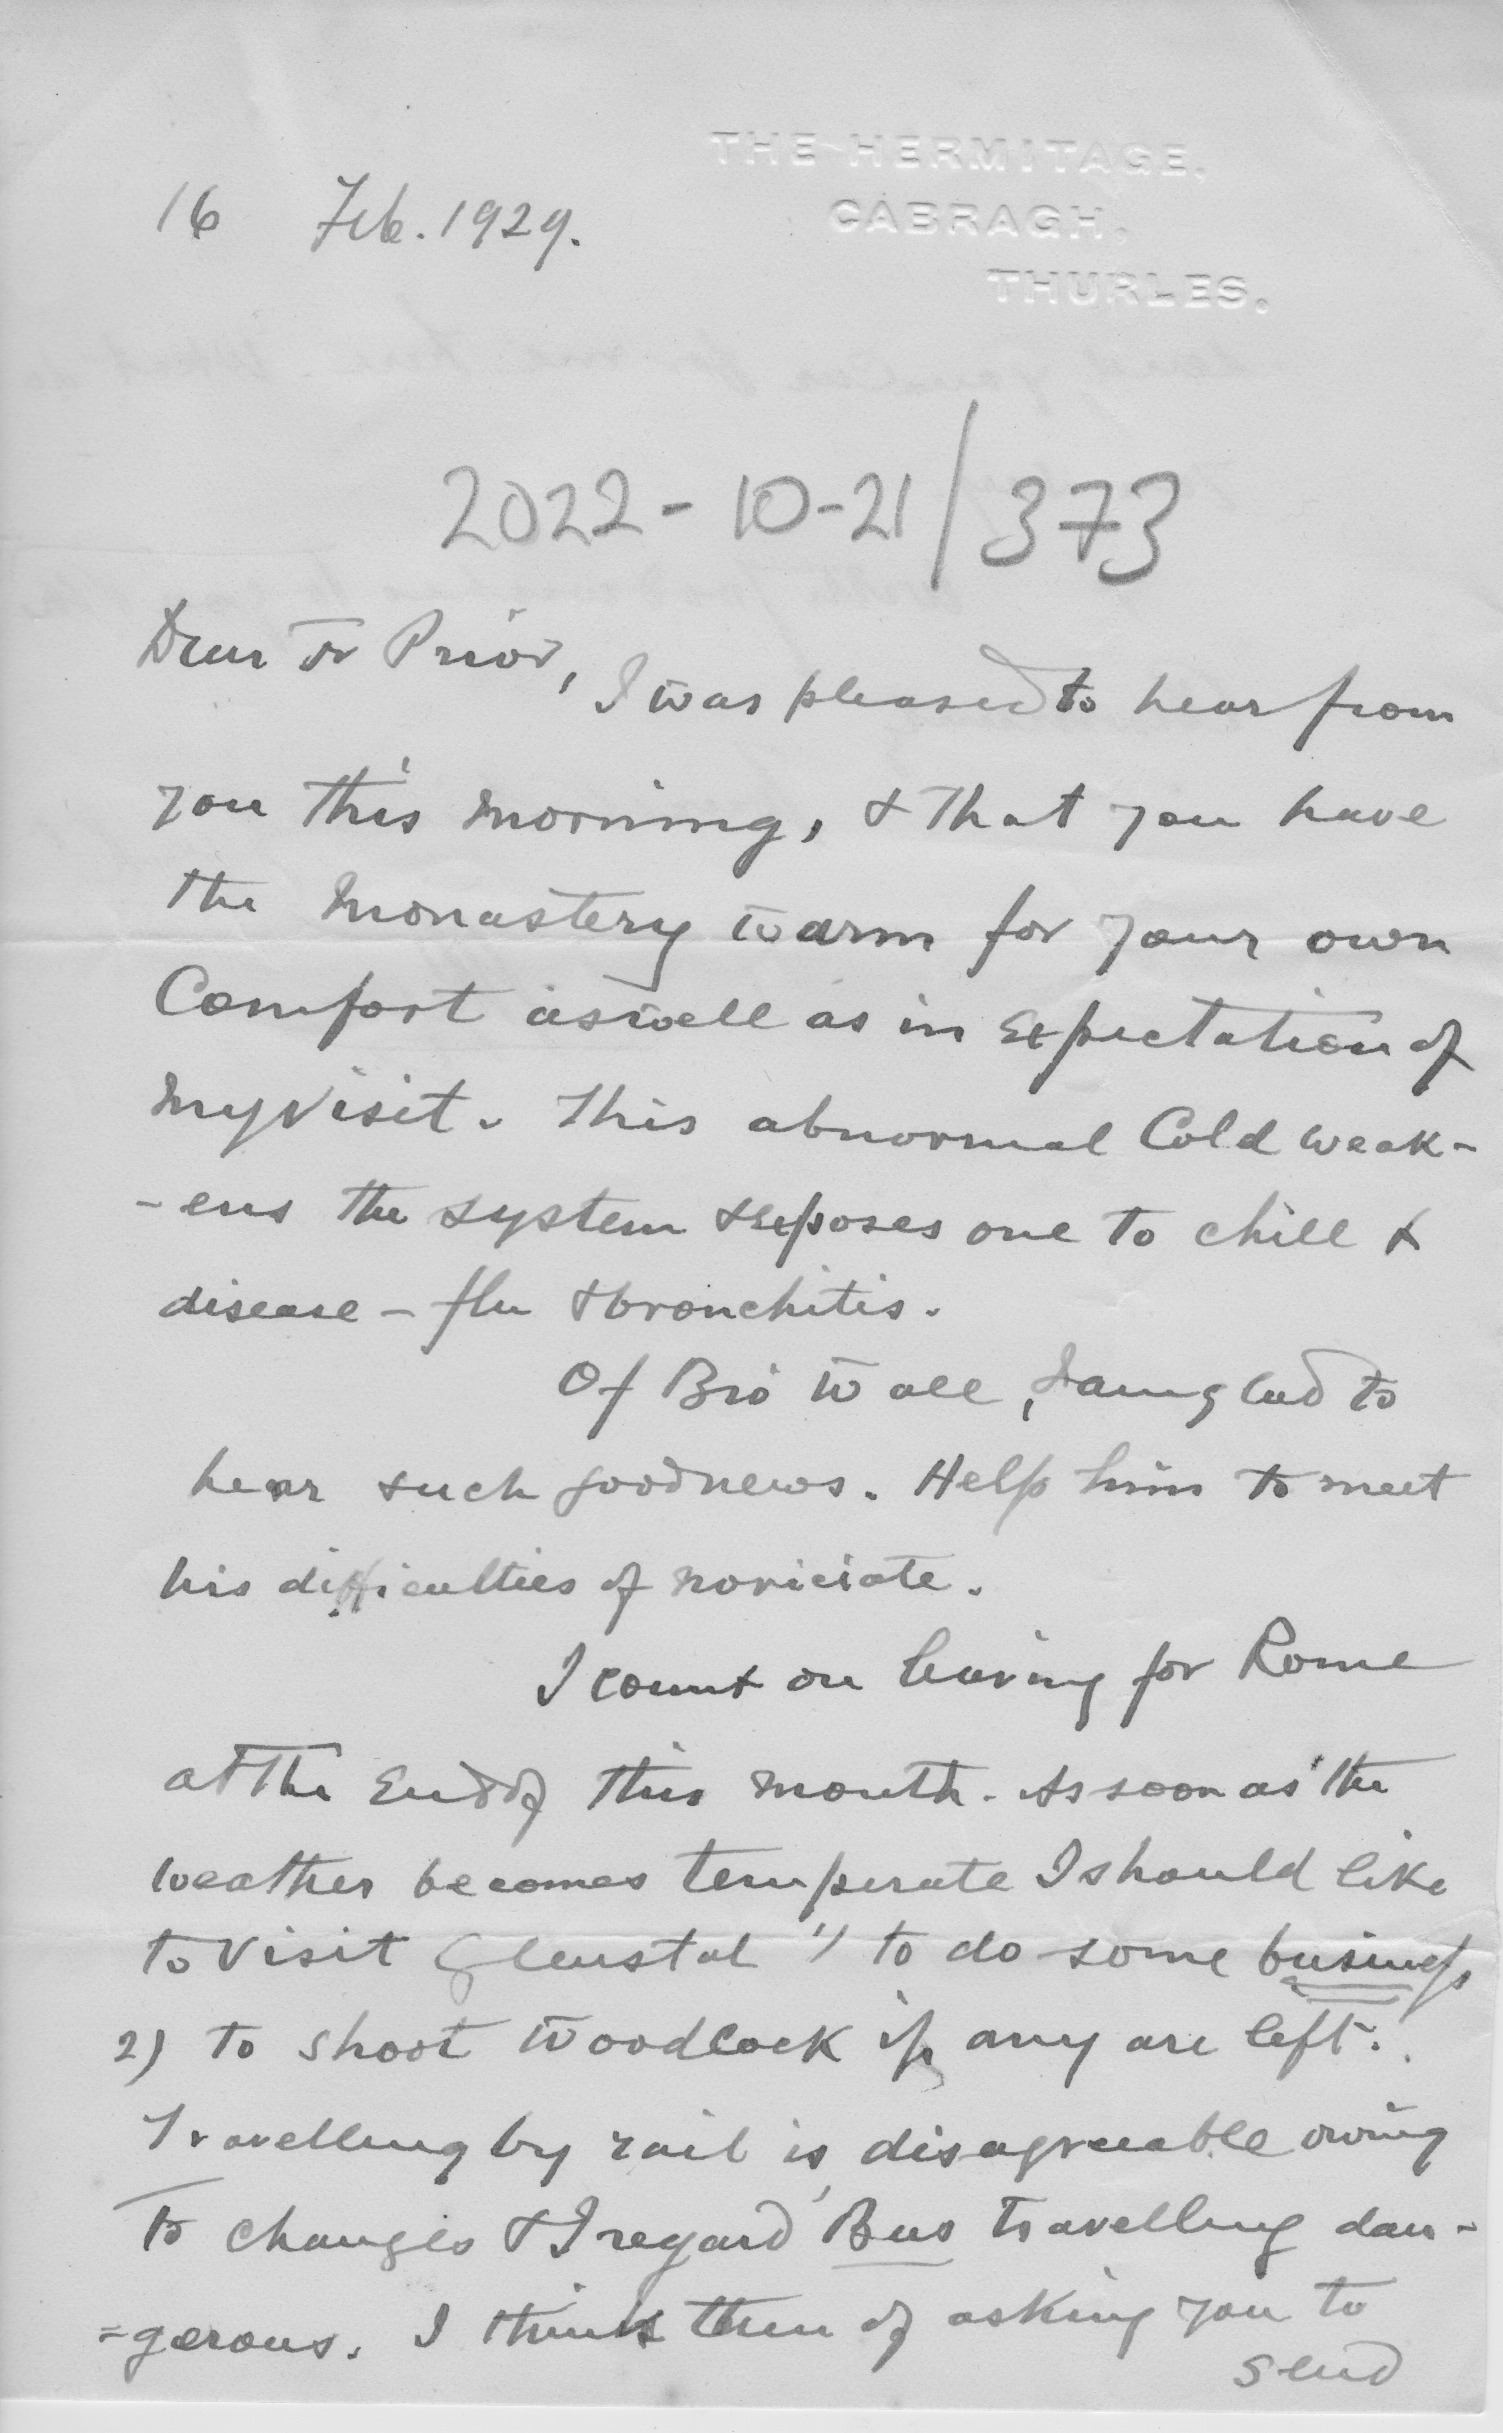 THE HERMITAGE,
CABRAGH,
THURLES.
16 Feb. 1929.
2022-10-21/373
Dear Fr Prior,
I was pleased to hear from
you this morning, & that you have
the Monastery warm for your own
Comfort aswell as in Expectation of
my visit. This abnormal Cold weak-
-ens the system & Exposes one to chill &
disease - flu & bronchitis.
Of Bro Wall, I am glad to
hear such good news. Help him to meet
his difficulties of noviciate.
I count on leaving for Rome
at the End of this month. As soon as the
weather becomes temperate I should like
to visit Glenstal 1) to do some business
2) to shoot Woodcock if any are left.
Travelling by rail is disagreeable owing
to changes & I regard Bus travelling dan-
=gerous. I think then of asking you to
send